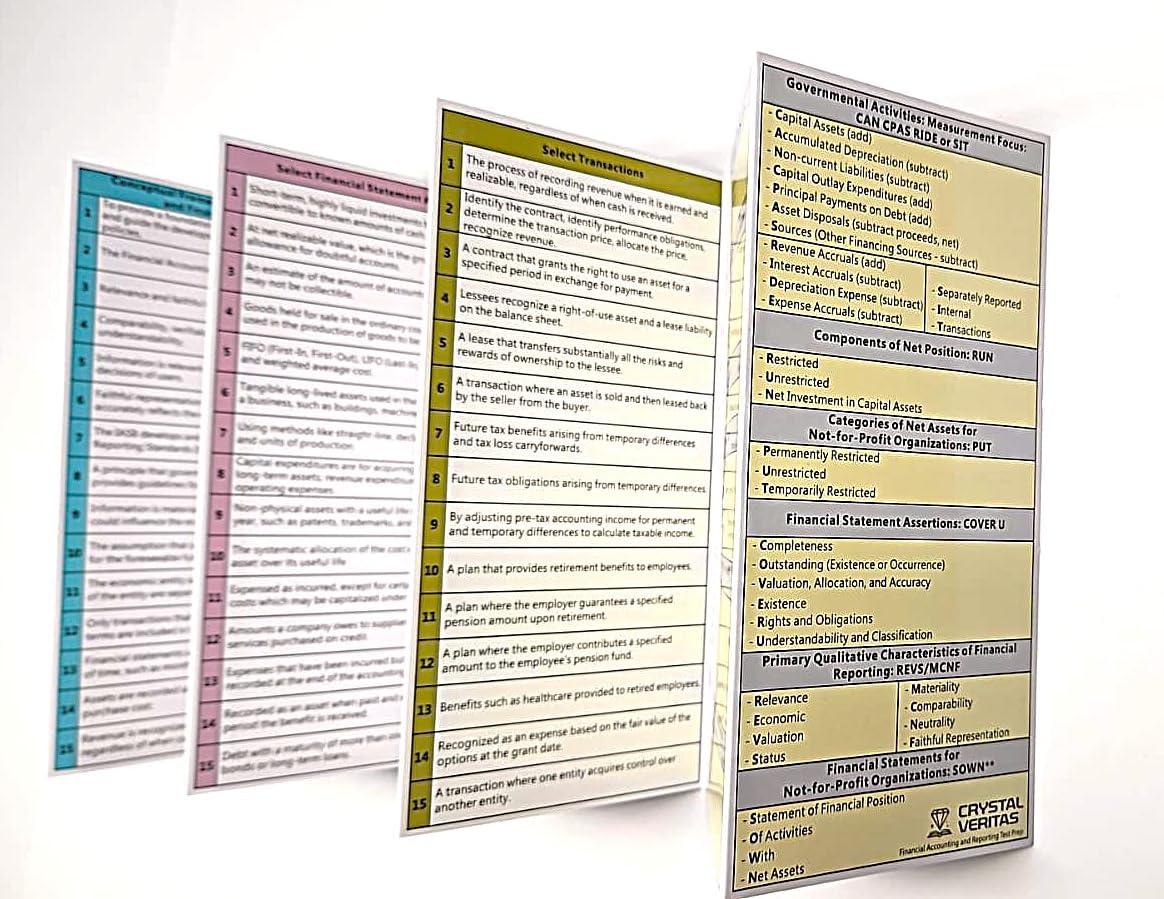 Conceptual
1
To provide a
and guide the
policies.
2
The Financial
3
Relevance and
4
Comparability,
understandability.
5
Information is relevant
decisions of users.
6
Faithful
7
8
A principle that
provides guidelines
9
Information is
could influence the
10
The assumption that
for the foreseeable
11
The economic entity
of the entity are
12
Only transactions that
terms are included
13
Financial
of time, such as
14
Assets are recorded
purchase cost.
15
Revenue is
regardless of when
Select Financial Statement
1
Short-term, highly liquid investments
convertible to known amounts of cash
2
At net realizable value, which is the
allowance for doubtful accounts.
3
An estimate of the amount of accounts
may not be collectible.
4
Goods held for sale in the ordinary
used in the production of goods to be
5
FIFO (First-In, First-Out), LIFO (Last-In,
and weighted average cost.
6
Tangible long-lived assets used in the
a business, such as buildings,
7
Using methods like straight-line,
and units of production.
8
Capital expenditures are for acquiring
long-term assets; revenue
operating expenses.
9
Non-physical assets with a useful
year, such as patents, trademarks, and
10
The systematic allocation of the cost
asset over its useful life.
11
Expensed as incurred, except for
costs which may be capitalized under
12
Amounts a company owes to
services purchased on credit.
13
Expenses that have been incurred but
recorded at the end of the accounting
14
Recorded as an asset when paid and
period the benefit is received.
15
Debt with a maturity of more than
bonds or long-term loans.
Select Transactions
1
The process of recording revenue when it is earned and
realizable, regardless of when cash is received.
2
Identify the contract, identify performance obligations,
determine the transaction price, allocate the price,
recognize revenue.
3
A contract that grants the right to use an asset for a
specified period in exchange for payment.
4
Lessees recognize a right-of-use asset and a lease liability
on the balance sheet.
5
A lease that transfers substantially all the risks and
rewards of ownership to the lessee.
6
A transaction where an asset is sold and then leased back
by the seller from the buyer.
7
Future tax benefits arising from temporary differences
and tax loss carryforwards.
8
Future tax obligations arising from temporary differences.
9
By adjusting pre-tax accounting income for permanent
and temporary differences to calculate taxable income.
10
A plan that provides retirement benefits to employees.
11
A plan where the employer guarantees a specified
pension amount upon retirement.
12
A plan where the employer contributes a specified
amount to the employee's pension fund.
13
Benefits such as healthcare provided to retired employees.
14
Recognized as an expense based on the fair value of the
options at the grant date.
15
A transaction where one entity acquires control over
another entity.
Governmental Activities: Measurement Focus:
CAN CPAS RIDE or SIT
- Capital Assets (add)
- Accumulated Depreciation (subtract)
- Non-current Liabilities (subtract)
- Capital Outlay Expenditures (add)
- Principal Payments on Debt (add)
- Asset Disposals (subtract proceeds, net)
- Sources (Other Financing Sources - subtract)
- Revenue Accruals (add)
- Interest Accruals (subtract)
- Depreciation Expense (subtract)
- Expense Accruals (subtract)
- Separately Reported
- Internal
- Transactions
Components of Net Position: RUN
- Restricted
- Unrestricted
- Net Investment in Capital Assets
Categories of Net Assets for
Not-for-Profit Organizations: PUT
- Permanently Restricted
- Unrestricted
- Temporarily Restricted
Financial Statement Assertions: COVER U
- Completeness
- Outstanding (Existence or Occurrence)
- Valuation, Allocation, and Accuracy
- Existence
- Rights and Obligations
- Understandability and Classification
Primary Qualitative Characteristics of Financial
Reporting: REVS/MCNF
- Relevance
- Economic
- Valuation
- Status
- Materiality
- Comparability
- Neutrality
- Faithful Representation
Financial Statements for
Not-for-Profit Organizations: SOWN**
- Statement of Financial Position
- Of Activities
- With
- Net Assets
CRYSTAL
VERITAS
Financial Accounting and Reporting Test Prep